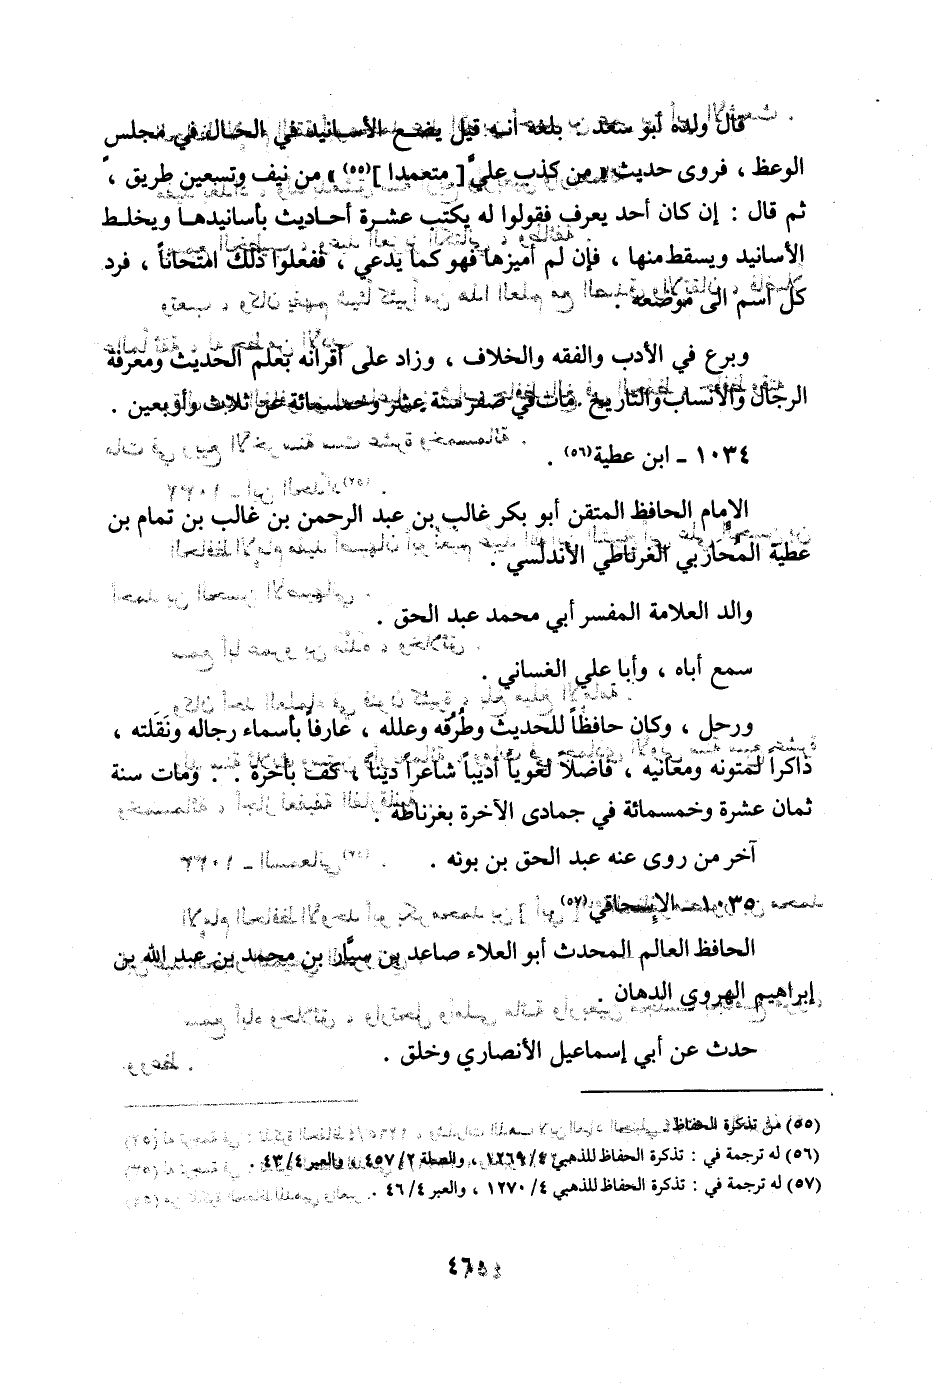 قال ولده أبو سعد : بلغه أنه قيل يضع الأسانيد في الحال في مجلس
الوعظ ، فروى حديث « من كذب عليَّ [ متعمدا ](٥٥) » من نيف وتسعين طريق ،
ثم قال : إن كان أحد يعرف فقولوا له يكتب عشرة أحاديث بأسانيدها ويخلط
الأسانيد ويسقط منها ، فإن لم أميزها فهو كما يدعي ، ففعلوا ذلك امتحاناً ، فرد
كل اسم الى موضعه .
وبرع في الأدب والفقه والخلاف ، وزاد على أقرانه بعلم الحديث ومعرفة
الرجال والأنساب والتاريخ . مات في صفر سنة عشر وخمسمائة عن ثلاث وأربعين .
١٠٣٤ ـ ابن عطية(٥٦) .
الإمام الحافظ المتقن أبو بكر غالب بن عبد الرحمن بن غالب بن تمام بن
عطية المُحَاربي الغرناطي الأندلسي .
والد العلامة المفسر أبي محمد عبد الحق .
سمع أباه ، وأبا علي الغساني .
ورحل ، وكان حافظاً للحديث وطُرُقه وعلله ، عارفاً بأسماء رجاله ونَقَلته ،
ذاكراً لمتونه ومعانيه ، فاضلاً لغوياً أديباً شاعراً ديناً ، كف بأخرة . . ومات سنة
ثمان عشرة وخمسمائة في جمادى الآخرة بغرناطة .
آخر من روى عنه عبد الحق بن بونه .
١٠٣٥ ـ الإسحاقي(٥٧)
الحافظ العالم المحدث أبو العلاء صاعد بن سيَّار بن محمد بن عبد الله بن
إبراهيم الهروي الدهان .
حدث عن أبي إسماعيل الأنصاري وخلق .
(٥٥) من تذكرة الحفاظ .
(٥٦) له ترجمة في : تذكرة الحفاظ للذهبي ٤/ ١٢٦٩ ، والصلة ٢/ ٤٥٧ ، والعبر ٤/ ٤٣ .
(٥٧) له ترجمة في : تذكرة الحفاظ للذهبي ٤/ ١٢٧٠ ، والعبر ٤/ ٤٦ .